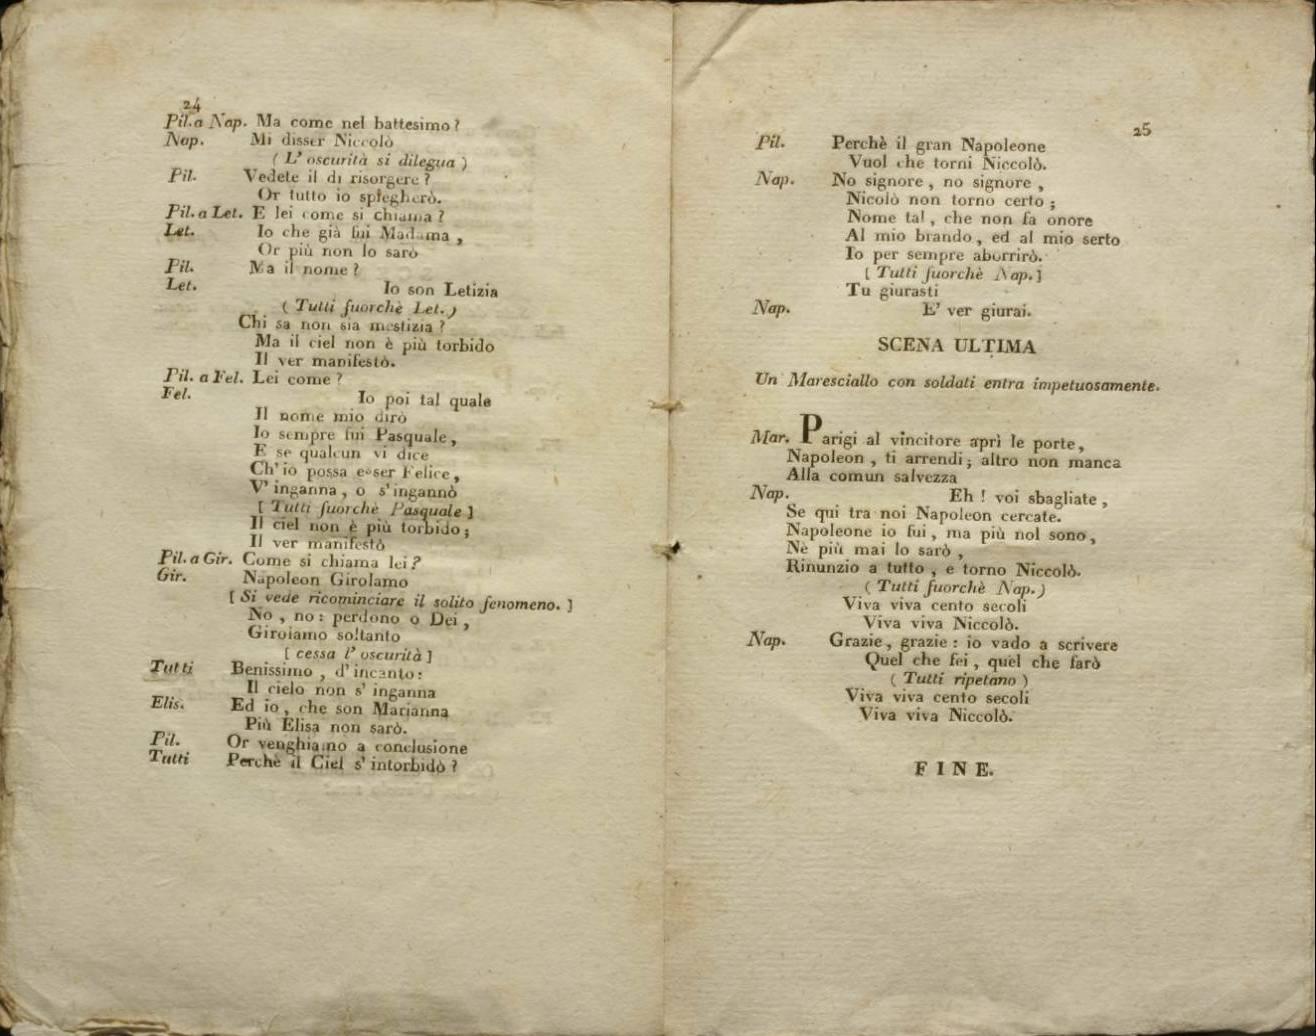 24
Pil. a Nap. Ma come nel battesimo?
Nap. Mi disser Niccolò
( L' oscurità si dilegua )
Pil. Vedete il di risorgere?
Or tutto io spiegherò.
Pil. a Let. E lei come si chiama?
Let. Io che già fui Madama,
Or più non lo sarò
Pil. Ma il nome?
Let. Io son Letizia
( Tutti fuorchè Let. )
Chi sa non sia mestizia?
Ma il ciel non è più torbido
Il ver manifestò.
Pil. a Fel. Lei come?
Fel. Io poi tal quale
Il nome mio dirò
Io sempre fui Pasquale,
E se qualcun vi dice
Ch' io possa esser Felice,
V' inganna, o s' ingannò
[ Tutti fuorchè Pasquale ]
Il ciel non è più torbido;
Il ver manifestò
Pil. a Gir. Come si chiama lei?
Gir. Napoleon Girolamo
[ Si vede ricominciare il solito fenomeno. ]
No, no: perdono o Dei,
Girolamo soltanto
[ cessa l' oscurità ]
Tutti Benissimo, d' incanto:
Il cielo non s' inganna
Elis. Ed io, che son Marianna
Più Elisa non sarò.
Pil. Or venghiamo a conclusione
Tutti Perchè il Ciel s' intorbidò?
25
Pil. Perchè il gran Napoleone
Vuol che torni Niccolò.
Nap. No signore, no signore,
Nicolò non torno certo;
Nome tal, che non fa onore
Al mio brando, ed al mio serto
Io per sempre aborrirò.
[ Tutti fuorchè Nap. ]
Tu giurasti
Nap. E' ver giurai.
SCENA ULTIMA
Un Maresciallo con soldati entra impetuosamente.
Mar. Parigi al vincitore aprì le porte,
Napoleon, ti arrendi; altro non manca
Alla comun salvezza
Nap. Eh! voi sbagliate,
Se qui tra noi Napoleon cercate.
Napoleone io fui, ma più nol sono,
Nè più mai lo sarò,
Rinunzio a tutto, e torno Niccolò.
( Tutti fuorchè Nap. )
Viva viva cento secoli
Viva viva Niccolò.
Nap. Grazie, grazie: io vado a scrivere
Quel che fei, quel che farò
( Tutti ripetano )
Viva viva cento secoli
Viva viva Niccolò.
FINE.